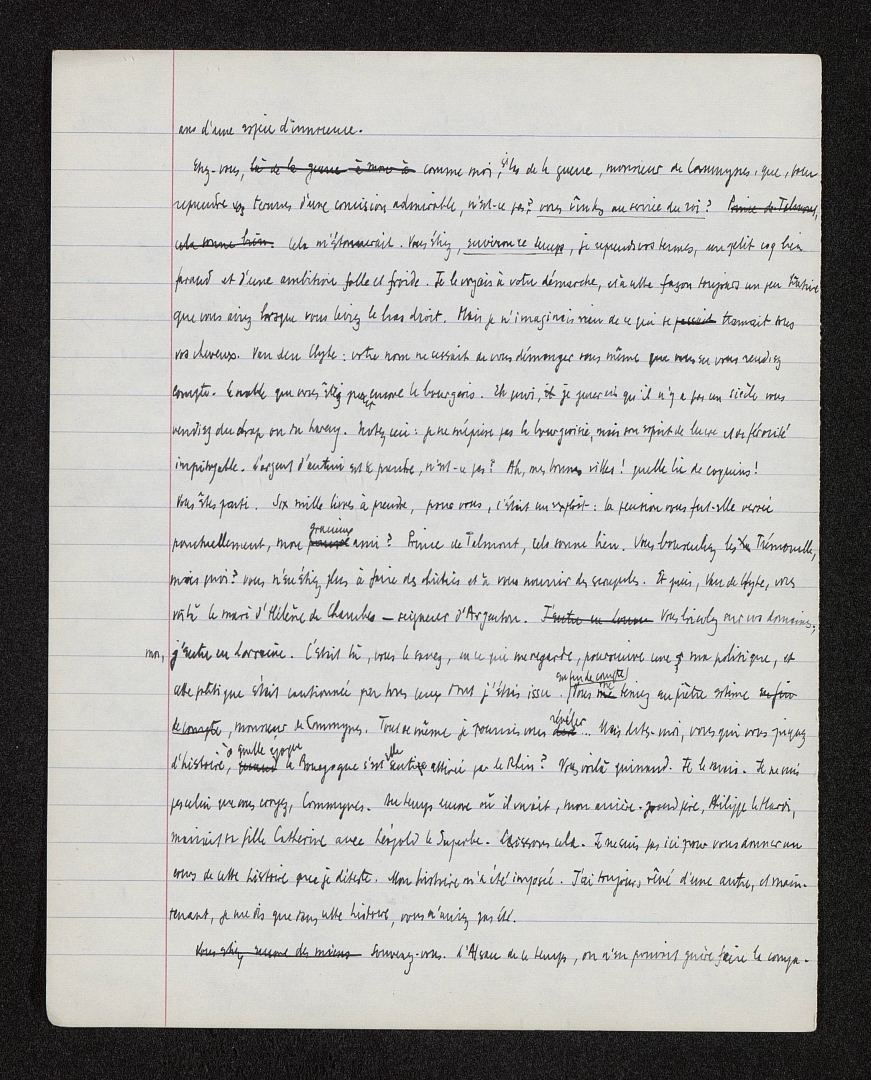 ans d'une espèce d'innocence.
Etiez-vous, là de la guerre à mon à comme moi, si las de la guerre, monsieur de Commynes, que, pour
reprendre vos termes d'une concision admirable, n'est-ce pas? vous vîntes au service du roi? Prince de Talmont,
cela sonne bien. Cela m'étonnerait. Vous étiez, environ ce temps, je reprends vos termes, un petit coq bien
faraud et d'une ambition folle et froide. Je le voyais à votre démarche, et à cette façon toujours un peu
que vous aviez lorsque vous leviez le bras droit. Mais je n'imaginais rien de ce qui se passait tramait sous
vos cheveux. Van den Clyte: votre nom ne cessait de vous démanger sans même que vous en vous rendiez
compte. que vous étiez encore le bourgeois. Eh quoi, je jurerais qu'il n'y a pas un siècle vous
vendiez du drap ou du hareng. Notez ceci: je ne méprise pas la bourgeoisie, mais son esprit de lucre et sa férocité
impitoyable. L'argent d'autrui est à prendre, n'est-ce pas? Ah, mes bonnes villes! quelle lie de coquins!
Vous êtes parti. Six mille livres à prendre, pour vous, c'était un exploit: la pension vous fut-elle versée
ponctuellement, mon gracieux ami? Prince de Talmont, cela sonne bien. Vous bousculiez les La Trémouille,
mais quoi? vous n'en étiez plus à faire des chichis et à vous nourrir de scrupules. Et puis, Van de Clyte, vous
voilà le mari d'Hélène de Chambes — seigneur d'Argenton. J'entre en Lorraine Vous bricoliez sur vos domaines;
moi, j'entre en Lorraine. C'était là, vous le savez, en ce qui me regarde, poursuivre une ma politique, et
cette politique était cautionnée par tous ceux dont j'étais issu. en fin de compte Vous me teniez en piètre estime en fin
de compte, monsieur de Commynes. Tout de même je pourrais vous révéler... Mais dites-moi, vous qui vous piquez
d'histoire, quand à quelle époque la Bourgogne s'est-elle sentie attirée par le Rhin? Vous voilà quinaud. Je le savais. Je ne suis
pas celui que vous croyez, Commynes. Au temps encore où il vivait, mon arrière-grand-père, Philippe le Hardi,
mariait sa fille Catherine avec Léopold le Superbe. Laissons cela. Je ne suis pas ici pour vous donner un
cours de cette histoire que je déteste. Mon histoire m'a été imposée. J'ai toujours rêvé d'une autre, et main-
tenant, je me dis que dans cette histoire, vous n'auriez pas été.
Vous étiez encore des miens Souvenez-vous. L'Alsace de ce temps, on n'en pouvait guère faire la compa-